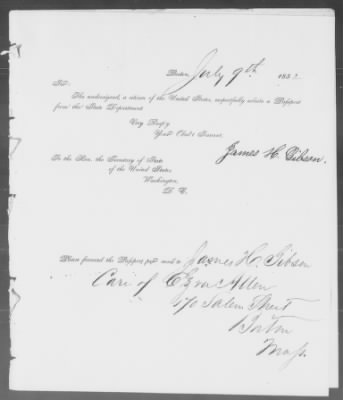 Boston July 9th 185
Sir:
The undersigned, a citizen of the United States, respectfully solicits a Passport
from the State Department.
Very Resp'y
Your Obd't Servant
James H. Gibson.
To the Hon. the Secretary of State
of the United States
Washington
D. C.
Please forward the Passport per mail to James H. Gibson
Care of Ezra Allen
Salem Street
Boston
Mass.